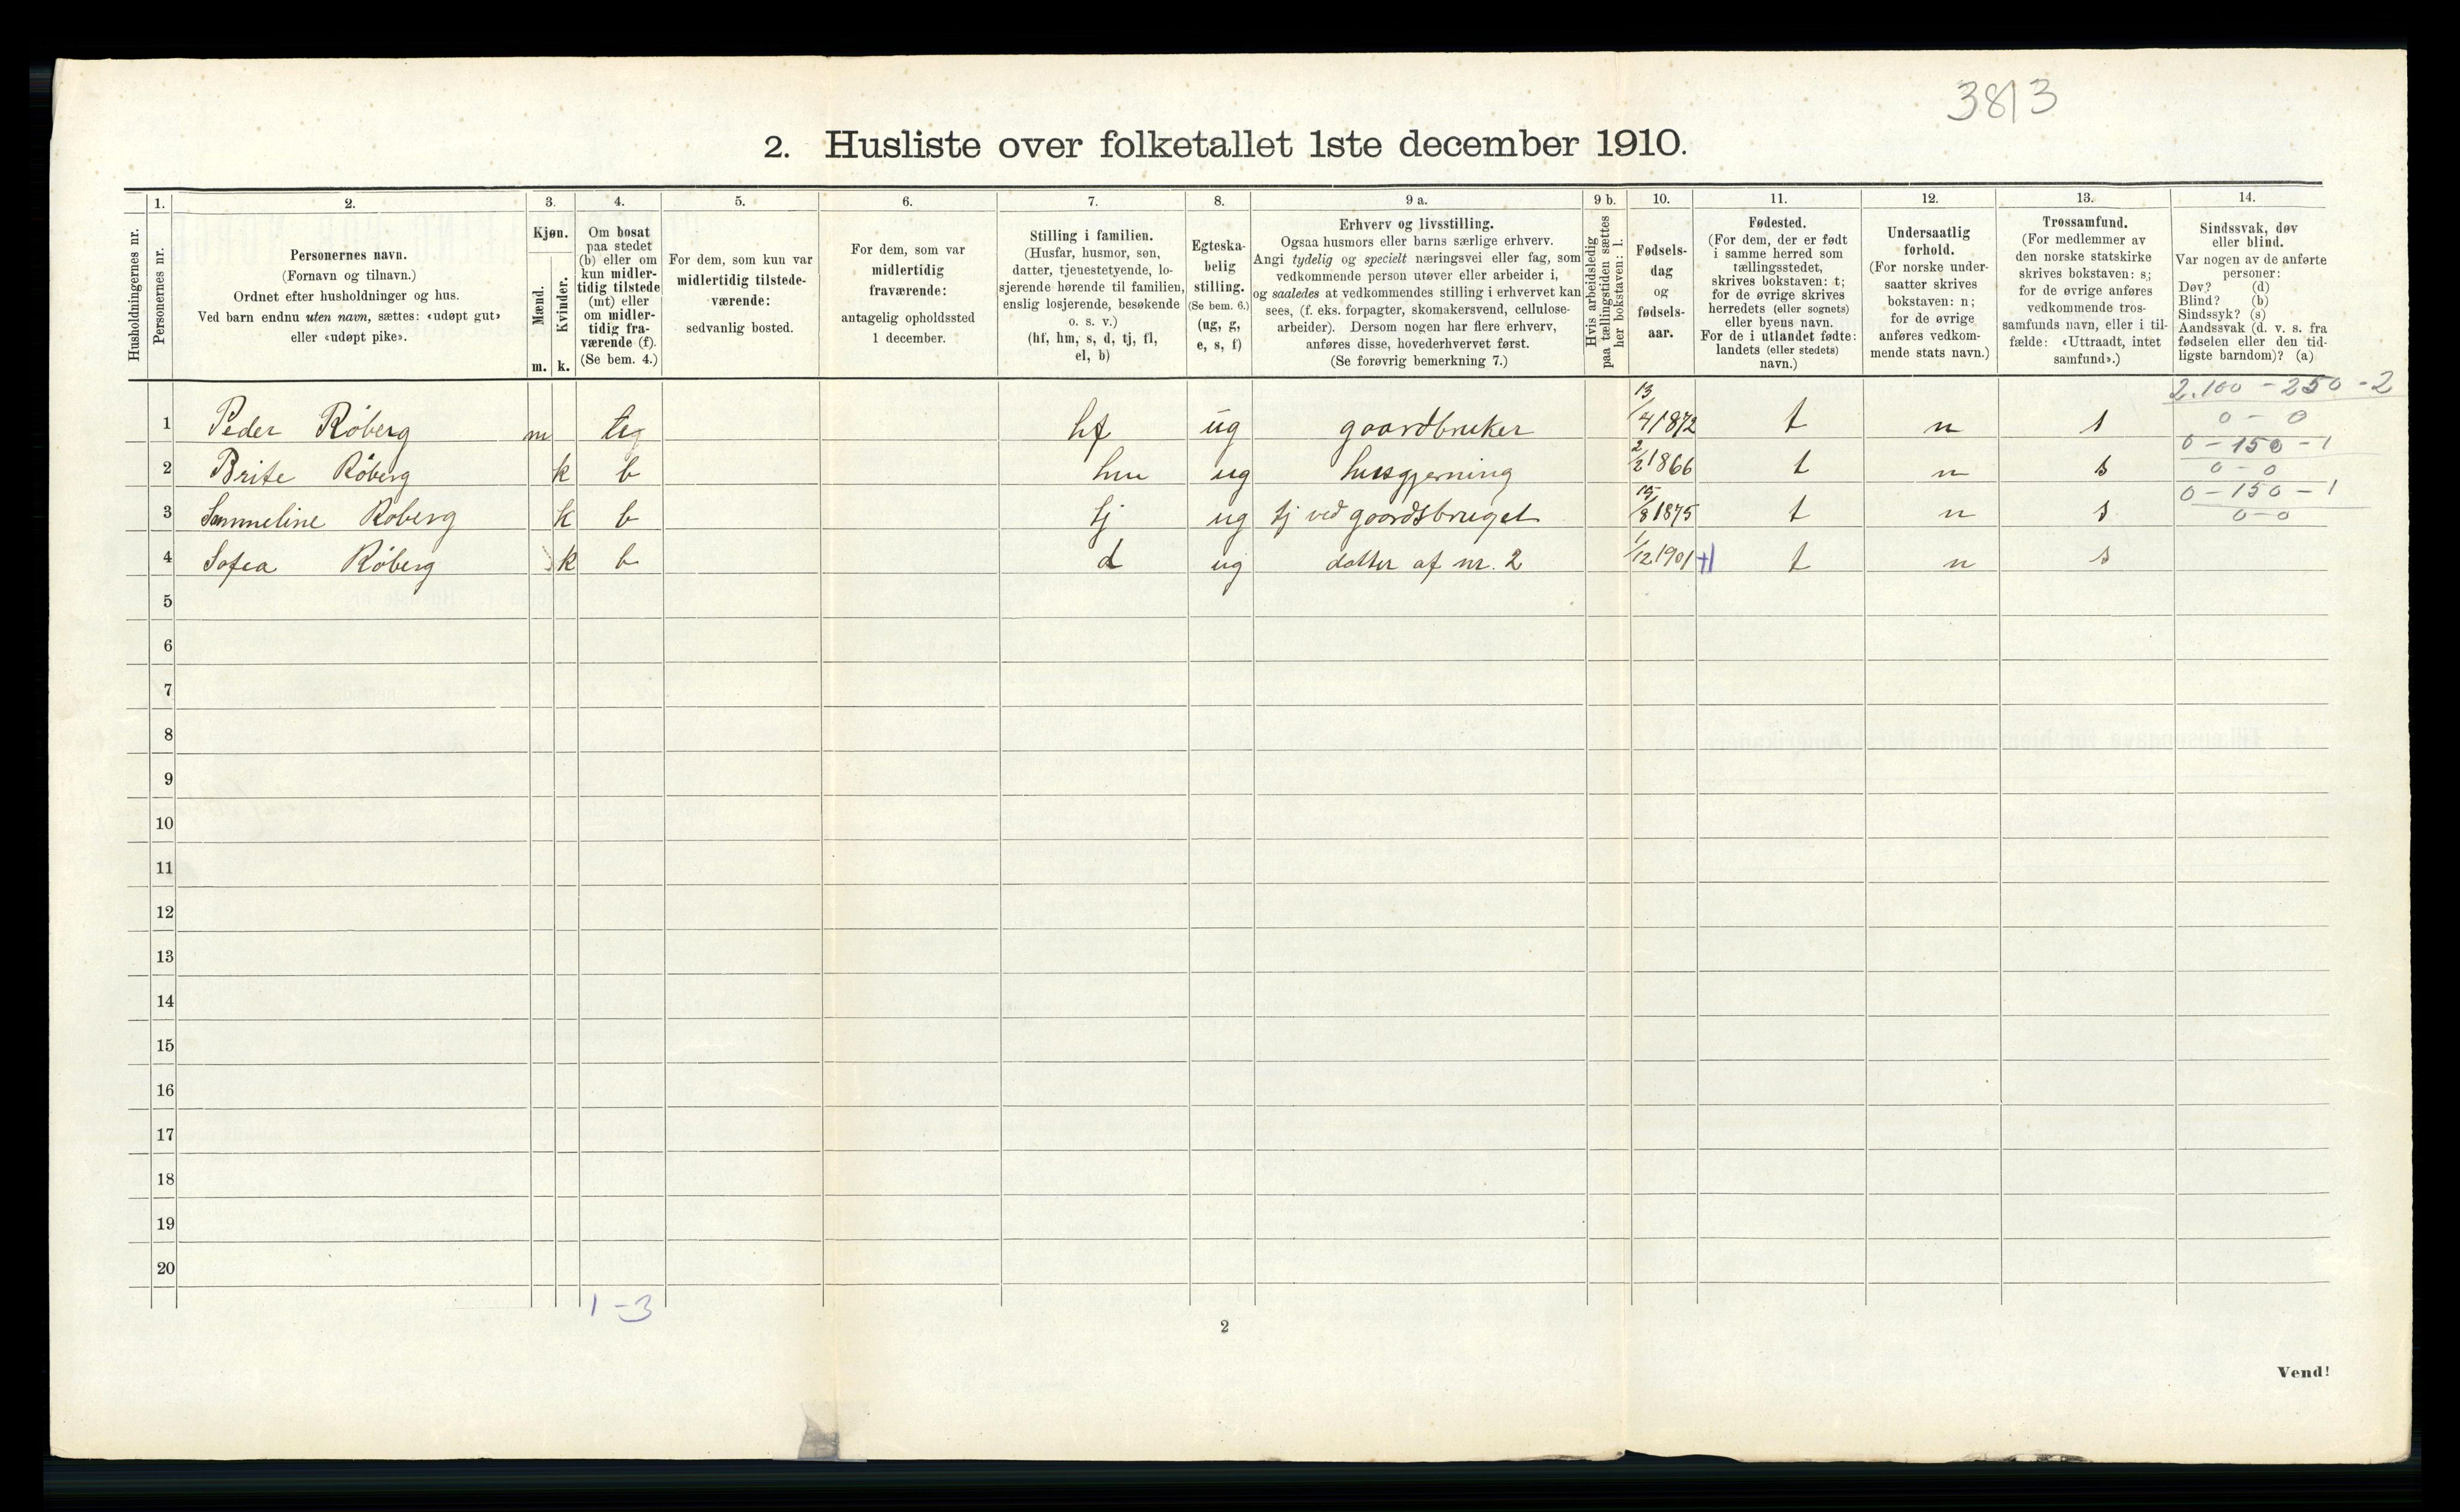 3813
2. Husliste over folketallet 1ste december 1910.
Husholdningernes nr.
1.
Personernes nr.
2.
Personernes navn.
(Fornavn og tilnavn.)
Ordnet efter husholdninger og hus.
Ved barn endnu uten navn, sættes: «udøpt gut»
eller «udøpt pike».
3.
Kjøn.
Mænd.
Kvinder.
m. k.
4.
Om bosat
paa stedet
(b) eller om
kun midler-
tidig tilstede
(mt) eller
om midler-
tidig fra-
værende (f).
(Se bem. 4.)
5.
For dem, som kun var
midlertidig tilstede-
værende:
sedvanlig bosted.
6.
For dem, som var
midlertidig
fraværende:
antagelig opholdssted
1 december.
7.
Stilling i familien.
(Husfar, husmor, søn,
datter, tjenestetyende, lo-
sjerende hørende til familien,
enslig losjerende, besøkende
o. s. v.)
(hf, hm, s, d, tj, fl,
el, b)
8.
Egteska-
belig
stilling.
(Se bem. 6.)
(ug, g,
e, s, f)
9 a.
Erhverv og livsstilling.
Ogsaa husmors eller barns særlige erhverv.
Angi tydelig og specielt næringsvei eller fag, som
vedkommende person utøver eller arbeider i,
og saaledes at vedkommendes stilling i erhvervet kan
sees, (f. eks. forpagter, skomakersvend, cellulose-
arbeider). Dersom nogen har flere erhverv,
anføres disse, hovederhvervet først.
(Se forøvrig bemerkning 7.)
9 b.
Hvis arbeidsledig
paa tællingstiden sættes
her bokstaven: l.
10.
Fødsels-
dag
og
fødsels-
aar.
11.
Fødested.
(For dem, der er født
i samme herred som
tællingsstedet,
skrives bokstaven: t;
for de øvrige skrives
herredets (eller sognets)
eller byens navn.
For de i utlandet fødte:
landets (eller stedets)
navn.)
12.
Undersaatlig
forhold.
(For norske under-
saatter skrives
bokstaven: n;
for de øvrige
anføres vedkom-
mende stats navn.)
13.
Trossamfund.
(For medlemmer av
den norske statskirke
skrives bokstaven: s;
for de øvrige anføres
vedkommende tros-
samfunds navn, eller i til-
fælde: «Uttraadt, intet
samfund».)
14.
Sindssvak, døv
eller blind.
Var nogen av de anførte
personer:
Døv? (d)
Blind? (b)
Sindssyk? (s)
Aandssvak (d. v. s. fra
fødselen eller den tid-
ligste barndom)? (a)
2.100 - 250 - 2
0 - 0
1 Peder Röberg m hf ug gaardbruker 13/4 1872 t n s
0 - 150 - 1
0 - 0
2 Brite Röberg k b hm ug husgjerning 2/2 1866 t n s
0 - 150 - 1
0 - 0
3 Sammeline Röberg k b tj ug tj ved gaardsbruget /8 1875 t n s
4 Sofea Röberg k b d ug dotter af nr. 2 1/12 1901 t n s
5
6
7
8
9
10
11
12
13
14
15
16
17
18
19
20
1 - 3
2
Vend!